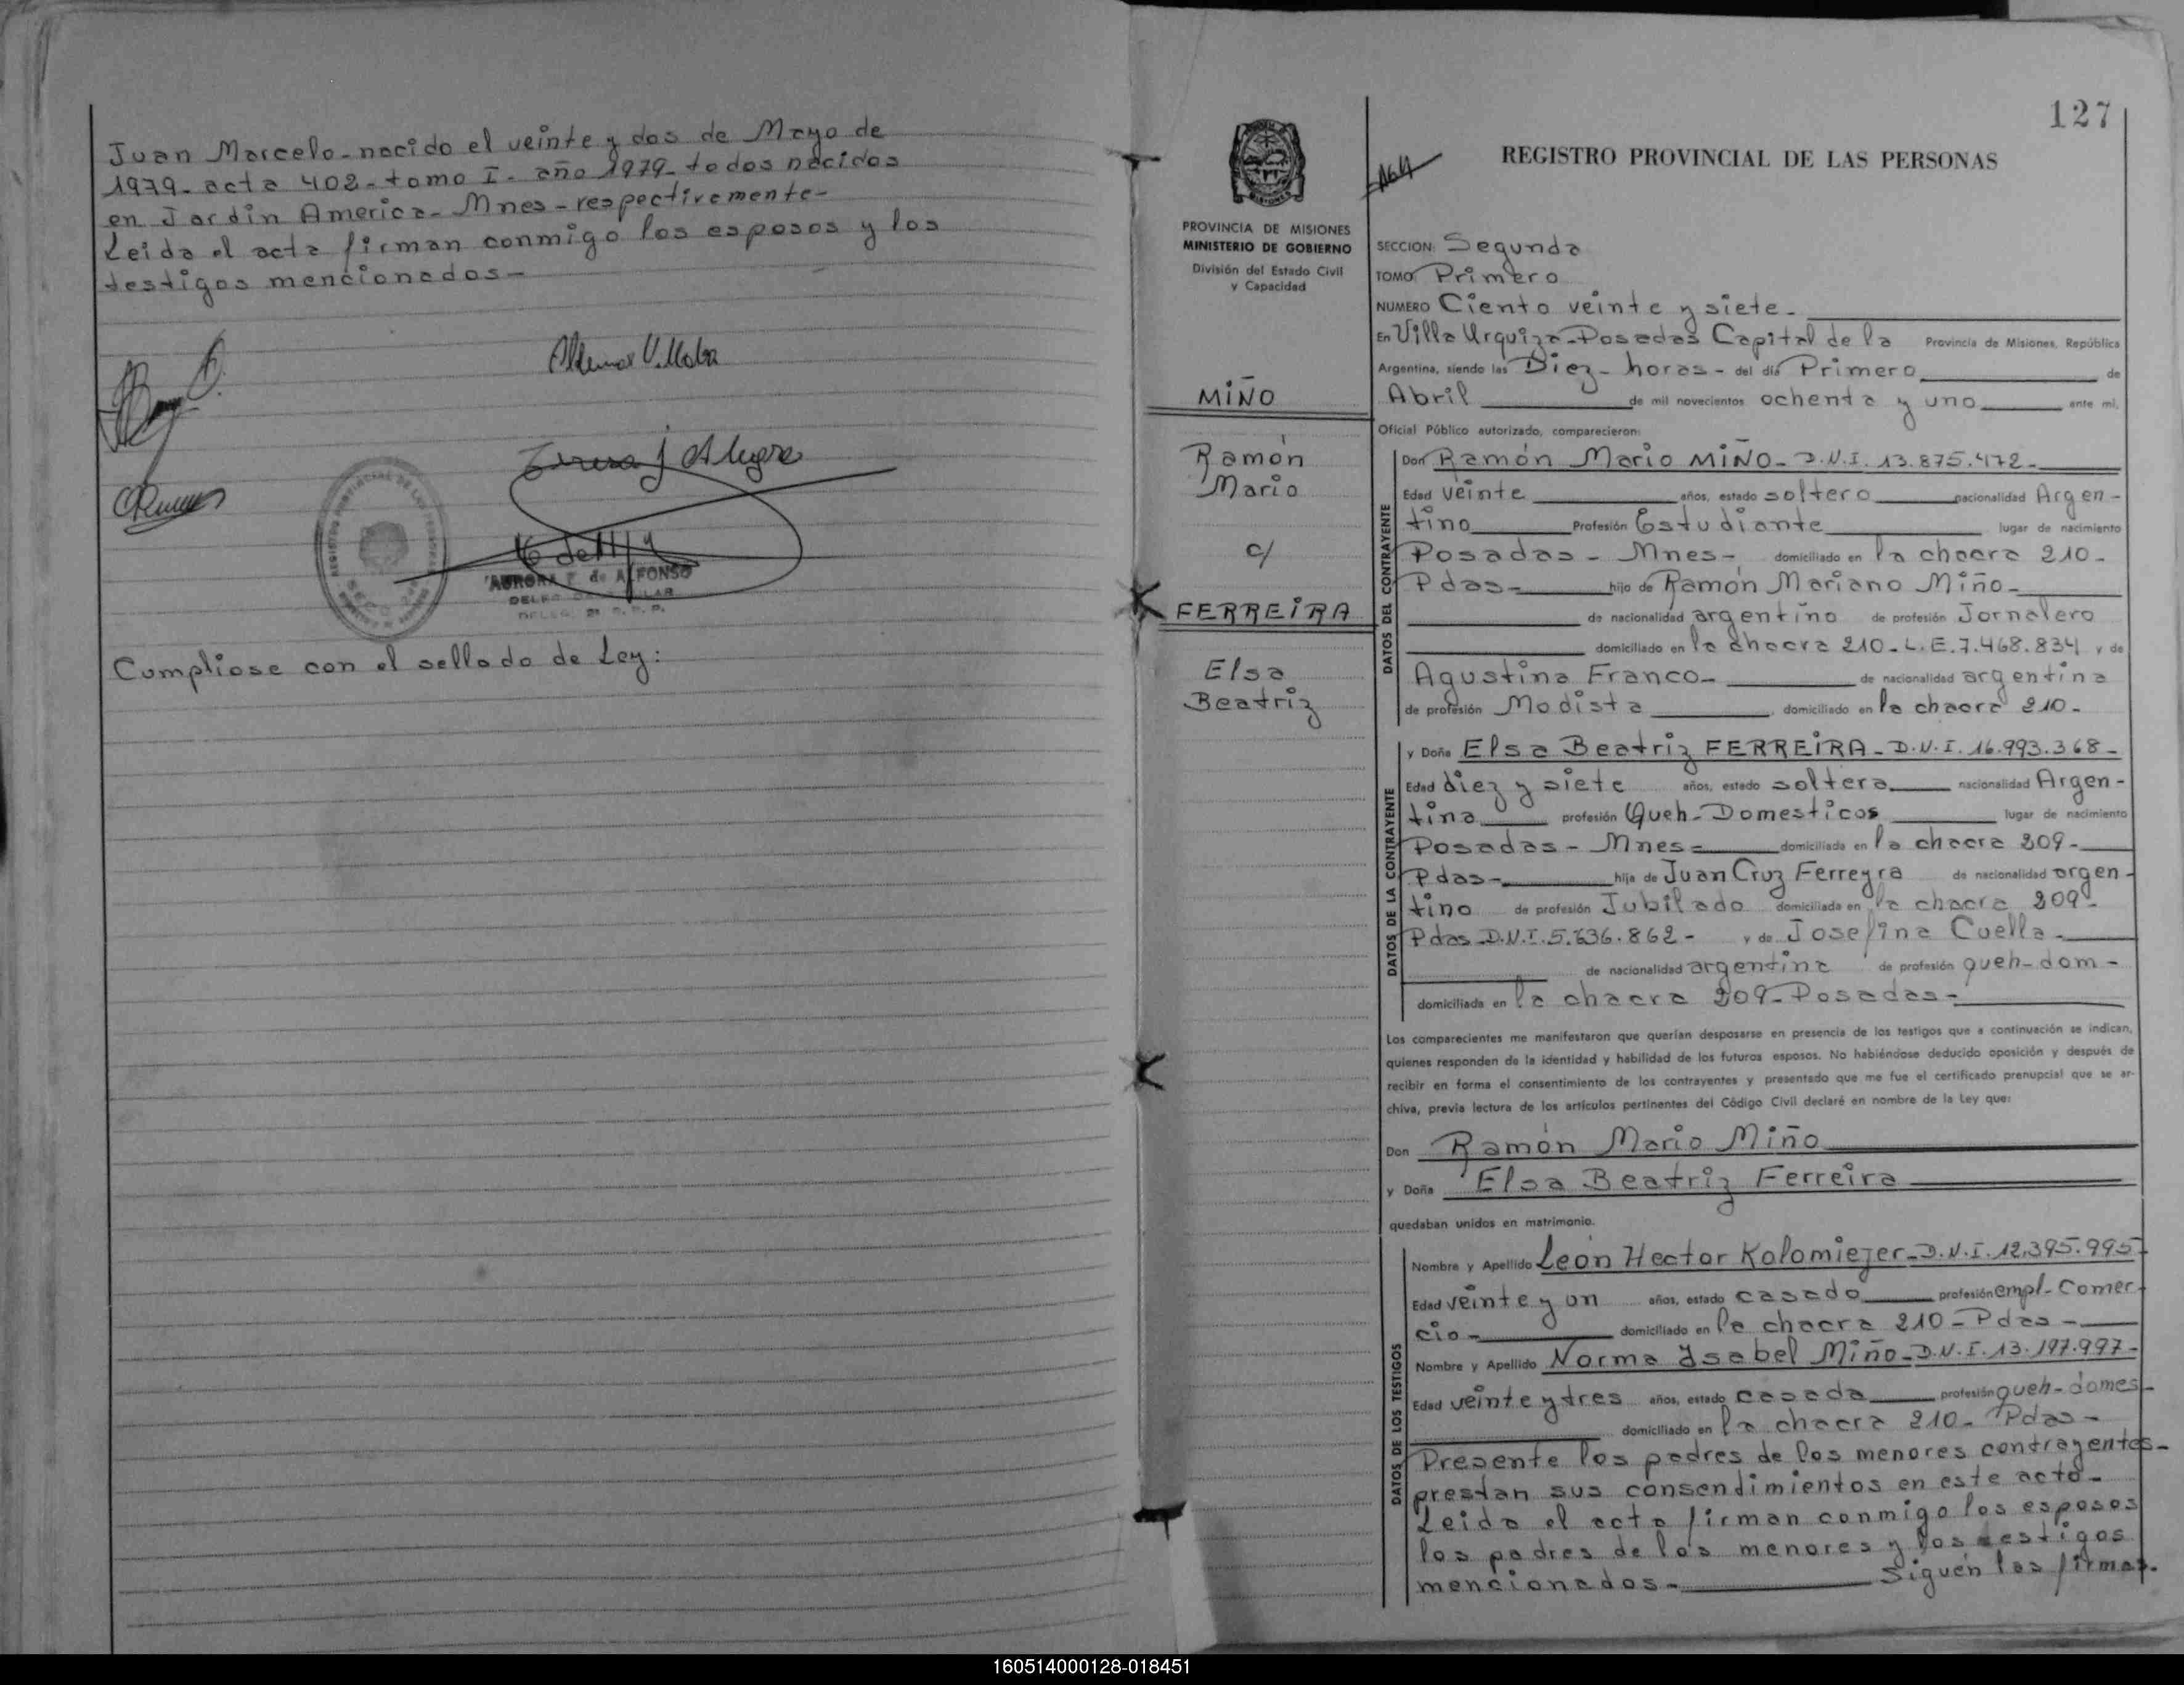 Juan Marcelo-nacido el veinte y dos de Mayo de
1979-acta 402-tomo I-año 1979-todos nacidos
en Jardin America-Mnes-respectivamente-
Leida el acta firman conmigo los esposos y los
testigos mencionados-
Aldemar Villalba
Teresa J Alegre
AURORA F. de ALFONSO
Cumpliose con el sellado de Ley:
127
PROVINCIA DE MISIONES
MINISTERIO DE GOBIERNO
División del Estado Civil
y Capacidad
MIÑO
Ramón
Mario
c/
FERREIRA
Elsa
Beatriz
REGISTRO PROVINCIAL DE LAS PERSONAS
SECCION: Segunda
TOMO: Primero
NUMERO Ciento veinte y siete-
En Villa Urquiza-Posadas Capital de la Provincia de Misiones, República
Argentina, siendo las Diez-horas-del día Primero de
Abril de mil novecientos ochenta y uno ante mí,
Oficial Público autorizado, comparecieron:
DATOS DEL CONTRAYENTE
Don Ramón Mario MIÑO-D.N.I. 13.875.472-
Edad veinte años, estado soltero nacionalidad Argen-
tino Profesión Estudiante lugar de nacimiento
Posadas-Mnes- domiciliado en la chacra 210-
Pdas- hijo de Ramón Mariano Miño-
de nacionalidad argentino de profesión Jornalero
domiciliado en la chacra 210-L.E.7.468.834 y de
Agustina Franco- de nacionalidad argentina
de profesión Modista domiciliado en la chacra 210-
DATOS DE LA CONTRAYENTE
y Doña Elsa Beatriz FERREIRA-D.N.I. 16.993.368-
Edad diez y siete años, estado soltera nacionalidad Argen-
tina profesión Queh-Domesticos lugar de nacimiento
Posadas-Mnes- domiciliada en la chacra 209-
Pdas- hija de Juan Cruz Ferreyra de nacionalidad argen-
tino de profesión Jubilado domiciliada en la chacra 209-
Pdas D.N.I.5.636.862- y de Josefina Cuella-
de nacionalidad argentina de profesión queh-dom-
domiciliada en la chacra 209-Posadas-
Los comparecientes me manifestaron que querían desposarse en presencia de los testigos que a continuación se indican,
quienes responden de la identidad y habilidad de los futuros esposos. No habiéndose deducido oposición y después de
recibir en forma el consentimiento de los contrayentes y presentado que me fue el certificado prenupcial que se ar-
chiva, previa lectura de los artículos pertinentes del Código Civil declaré en nombre de la Ley que:
Don Ramón Mario Miño
y Doña Elsa Beatriz Ferreira
quedaban unidos en matrimonio.
DATOS DE LOS TESTIGOS
Nombre y Apellido León Hector Kolomiejer-D.N.I.12.395.995-
Edad veinte y un años, estado casado profesión empl-Comer-
cio- domiciliado en la chacra 210-Pdas-
Nombre y Apellido Norma Ysabel Miño-D.N.I.13.197.997-
Edad veinte y tres años, estado casada profesión queh-domes-
domiciliado en la chacra 210-Pdas-
Presente los padres de los menores contrayentes-
prestan sus consendimientos en este acto-
Leida el acta firman conmigo los esposos
los padres de los menores y los testigos
mencionados- Siguen las firmas.
160514000128-018451